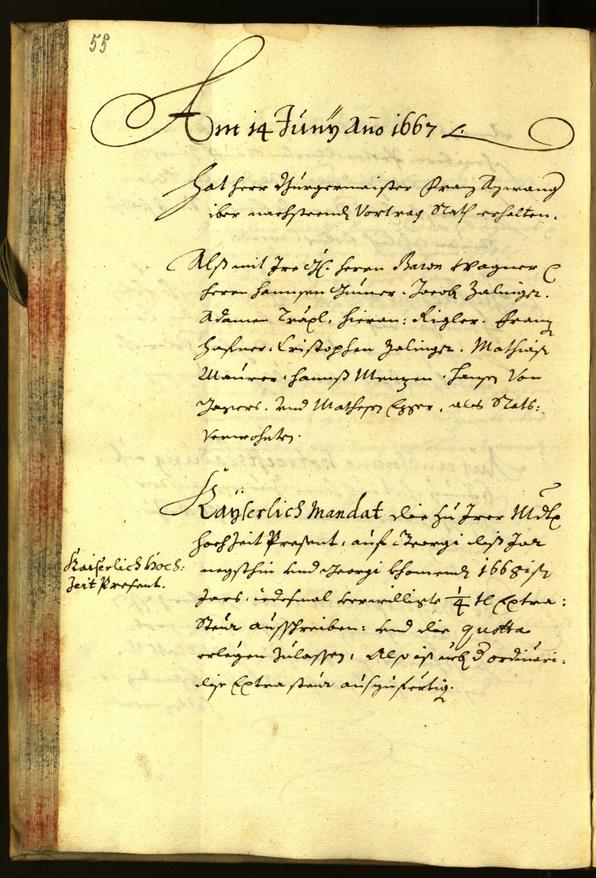 55
Am 14 Juny Año 1667
Hat Herr Burgermaister Franz Aywang
iber nachsteendn Vortrag Rath erhalten.
Alß mit Ire  Herrn Baron Wagner
Herrn Hannsen Gumer. Jacob Zalinger.
Adamen Träxl, Hieron: Rigler. Franz
Hafner. Cristophen Zalinger. Mathiasen
Maurer. Hannß Menzen. Hansen Von
 und Mathesen Egger, als Rats:
Verwohnten.
Kaiserlich Hoch:
Zeit Present.
Kayserlich Mandat die zu Irer Mdt
Hochzeit Present, auf Georgi diß Jar
negsthin und Georgi khomendn 1668isten
Jars, iedesmal verwilligte 1/4 tl Extra:
Steur ausschreiben: und die quotta
erlegen zulassen, Also ist neb d ordinari:
dise Extra steur auszufertig.